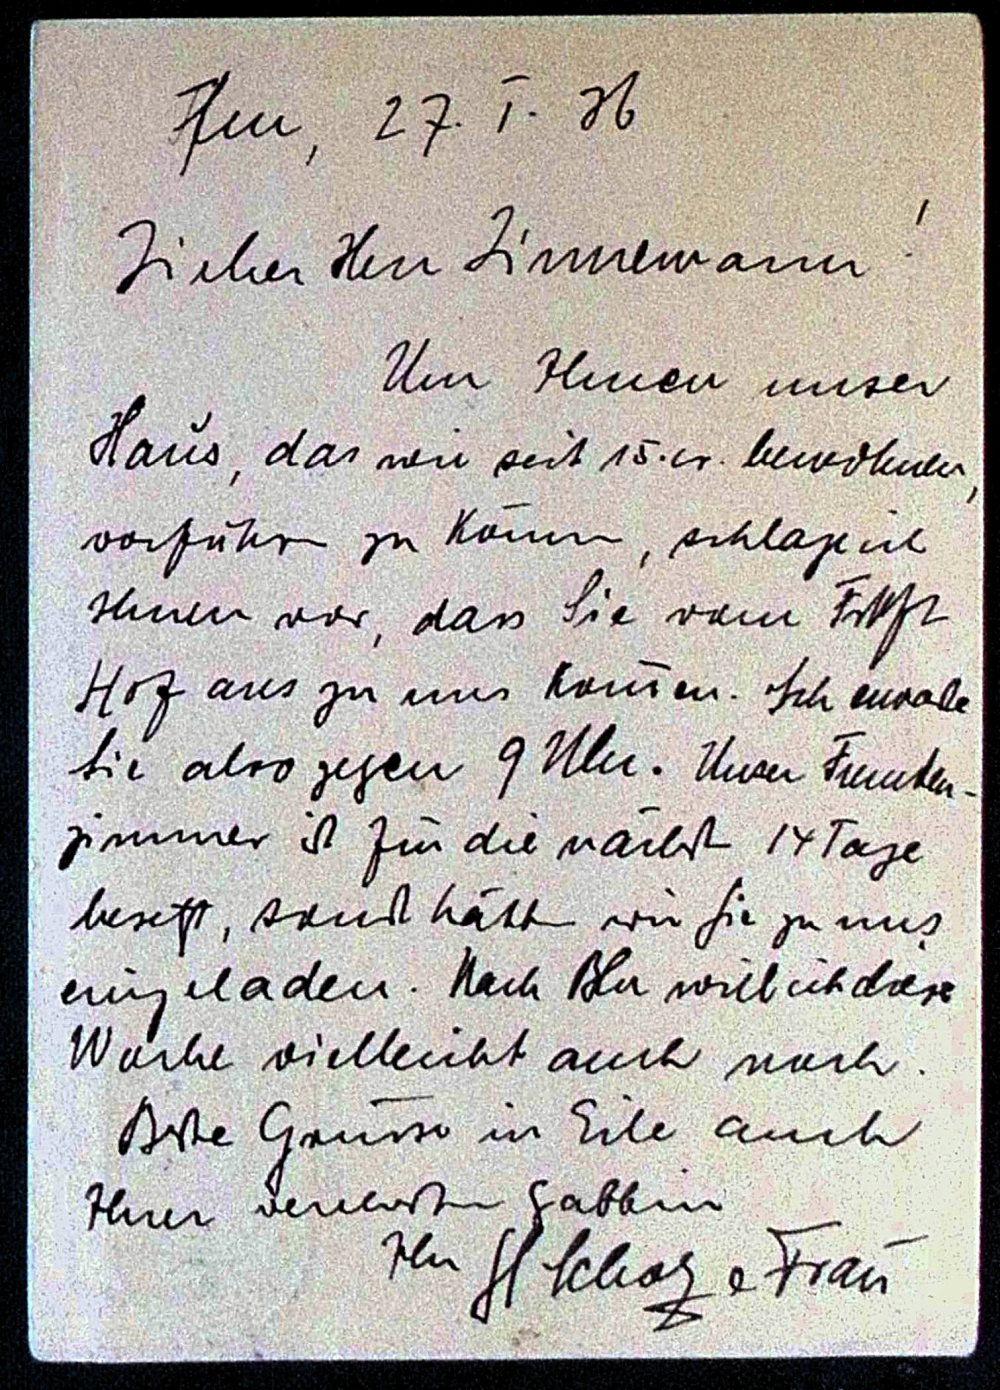 27. I. 36
Lieber Herr Zinnemann!
Um Ihnen unser
Haus, das wir seit 15. cr. bewohnen,
vorführen zu können, schlage ich
Ihnen vor, dass Sie vom Frkft
Hof aus zu uns kom̄en. Ich erwarte
Sie also gegen 9 Uhr. Unser Fremden-
zimmer ist für die nächst 14 Tage
besetzt, sonst hätten wir Sie zu uns
eingeladen. Nach Bln will ich diese
Woche vielleicht auch noch.
Beste Grüsse in Eile auch
Ihrer verehrten Gattin
Ihr Scholz & Frau